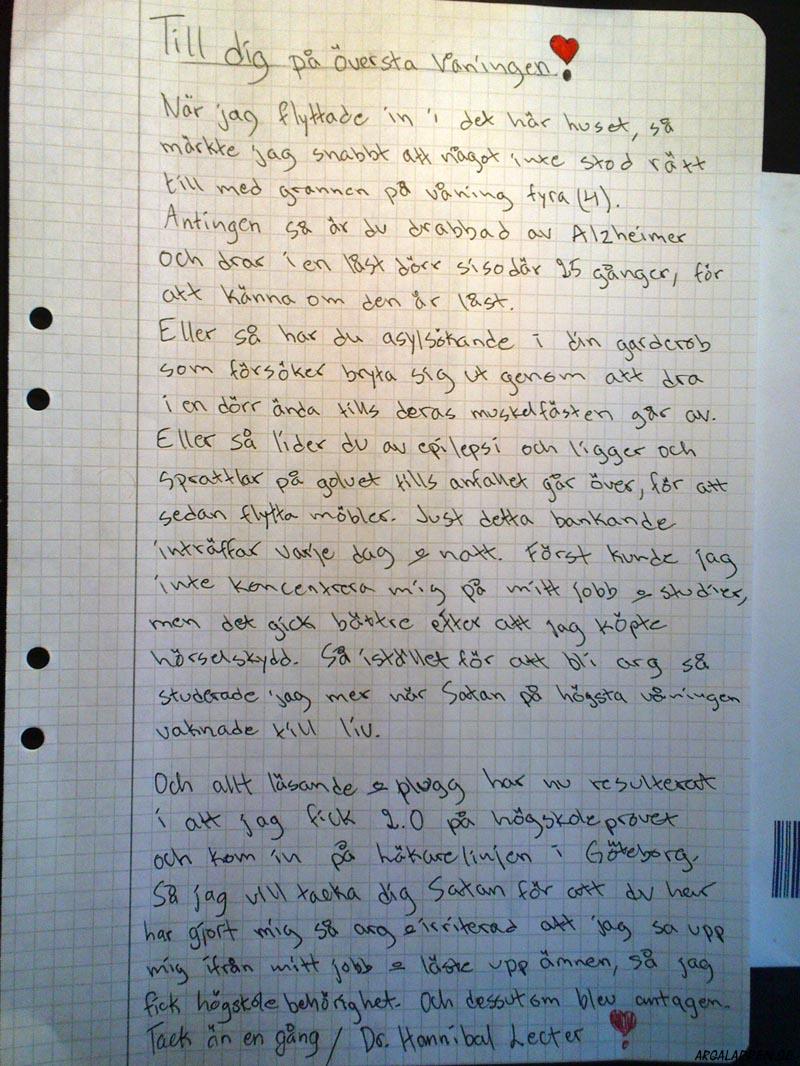 Till dig på översta våningen!
När jag flyttade in i det här huset, så
märkte jag snabbt att något inte stod rätt
till med grannen på våning fyra (4).
Antingen så är du drabbad av Alzheimer
och drar i en låst dörr sisodär 25 gånger, för
att känna om den är låst.
Eller så har du asylsökande i din garderob
som försöker bryta sig ut genom att dra
i en dörr ända tills deras muskelfästen går av.
Eller så lider du av epilepsi och ligger och
sprattlar på golvet tills anfallet går över, för att
sedan flytta möbler. Just detta bankande
inträffar varje dag & natt. Först kunde jag
inte koncentrera mig på mitt jobb & studier,
men det gick bättre efter att jag köpte
hörselskydd. Så istället för att bli arg så
studerade jag mer när Satan på högsta våningen
vaknade till liv.
Och allt läsande & plugg har nu resulterat
i att jag fick 2.0 på högskoleprovet
och kom in på läkarelinjen i Göteborg.
Så jag vill tacka dig Satan för att du har
har gjort mig så arg & irriterad att jag sa upp
mig ifrån mitt jobb & läste upp ämnen, så jag
fick högskolebehörighet. Och dessutom blev antagen.
Tack än en gång / Dr. Hannibal Lecter
ARGALAPPEN.SE